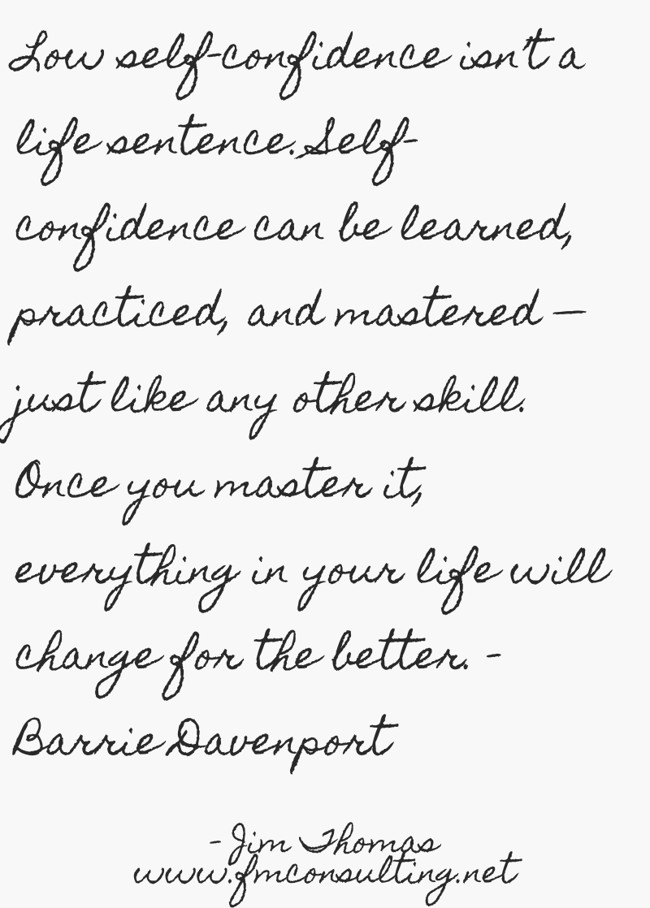 Low self-confidence isn't a
life sentence. Self-
confidence can be learned,
practiced, and mastered —
just like any other skill.
Once you master it,
everything in your life will
change for the better. -
Barrie Davenport
- Jim Thomas
www.fmconsulting.net